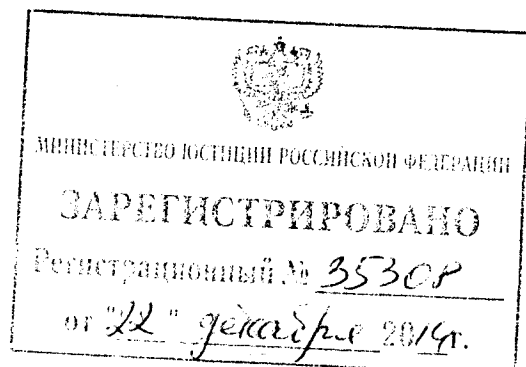 МИНИСТЕРСТВО ЮСТИЦИИ РОССИЙСКОЙ ФЕДЕРАЦИИ
ЗАРЕГИСТРИРОВАНО
Регистрационный № 35308
от "22" декабря 2014г.